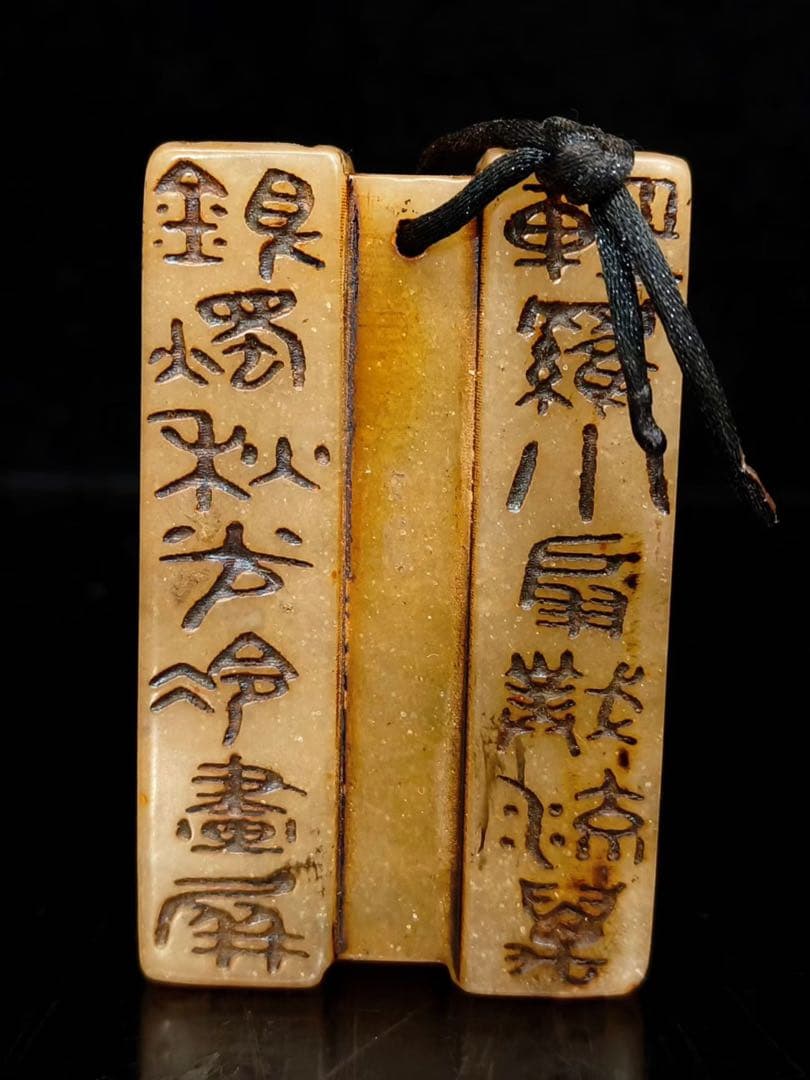 銀燭秋光冷畫屏
輕羅小扇撲流螢